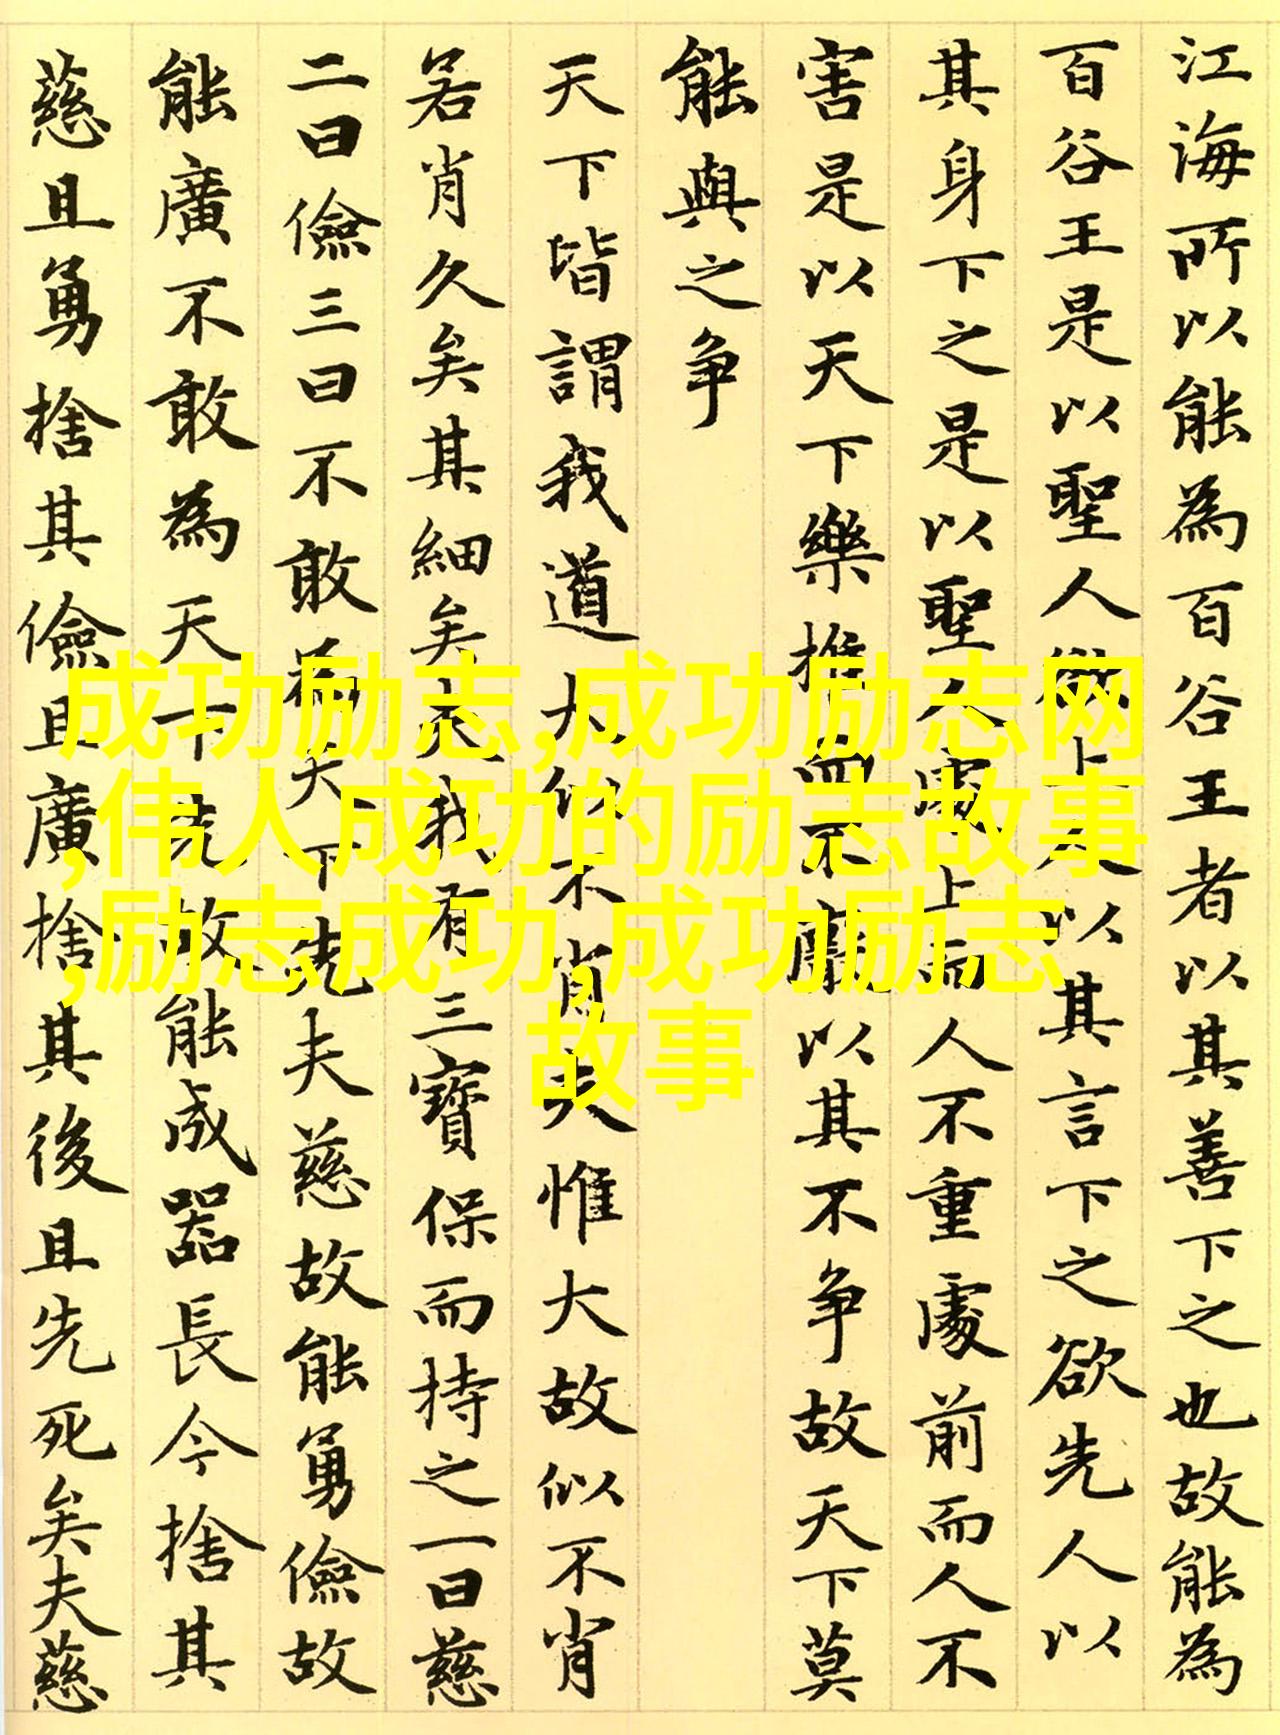 江海所以能為百谷王者以其善下之也故能為
百谷王是以聖人欲上人以其言下之欲先人以
其身下之是以聖人處上而人不重處前而人不
害是以天下樂推而不厭以其不争故天下莫
能與之争
天下皆謂我道大似不肖夫惟大故似不肖
若肖久矣其細矣夫我有三寶保而持之一曰慈
二曰儉三曰不敢為天下先夫慈故能勇儉故
能廣不敢為天下先故能成器長今捨其
慈且勇捨其儉且廣捨其後且先死矣夫慈
成功励志,成功励志网
,伟人成功的励志故事
,励志成功,成功励志
故事